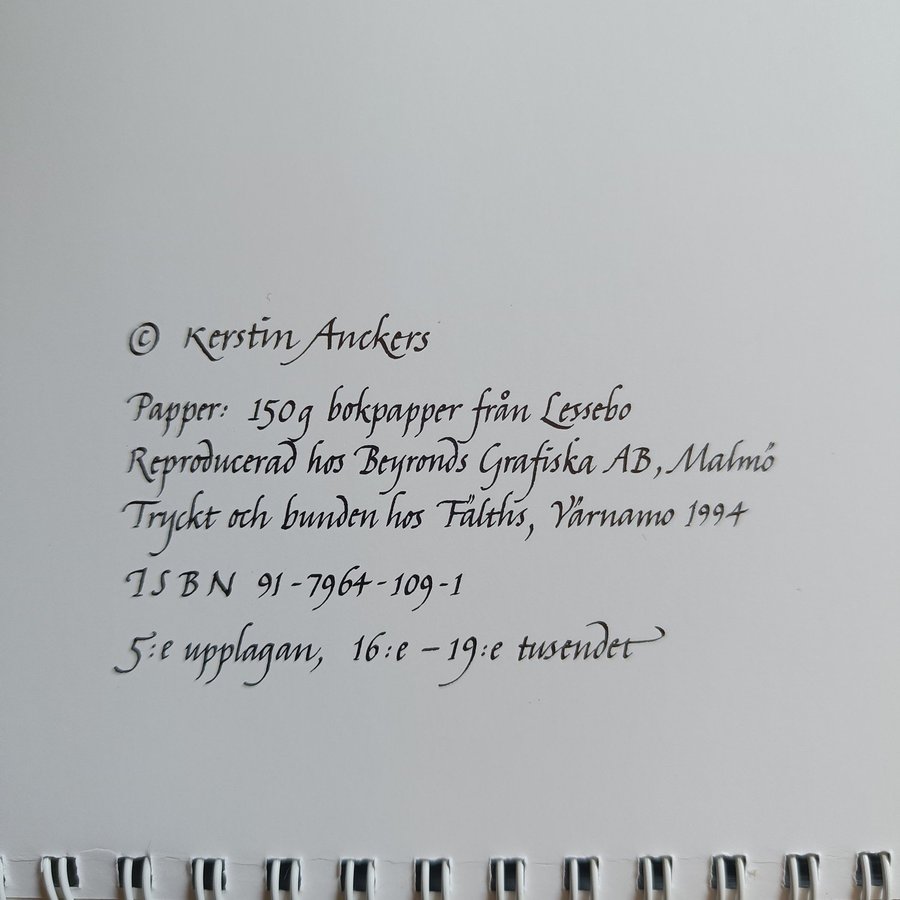 © Kerstin Anckers
Papper: 150g bokpapper från Lessebo
Reproducerad hos Beyronds Grafiska AB, Malmö
Tryckt och bunden hos Fälths, Värnamo 1994
ISBN 91-7964-109-1
5:e upplagan, 16:e – 19:e tusendet